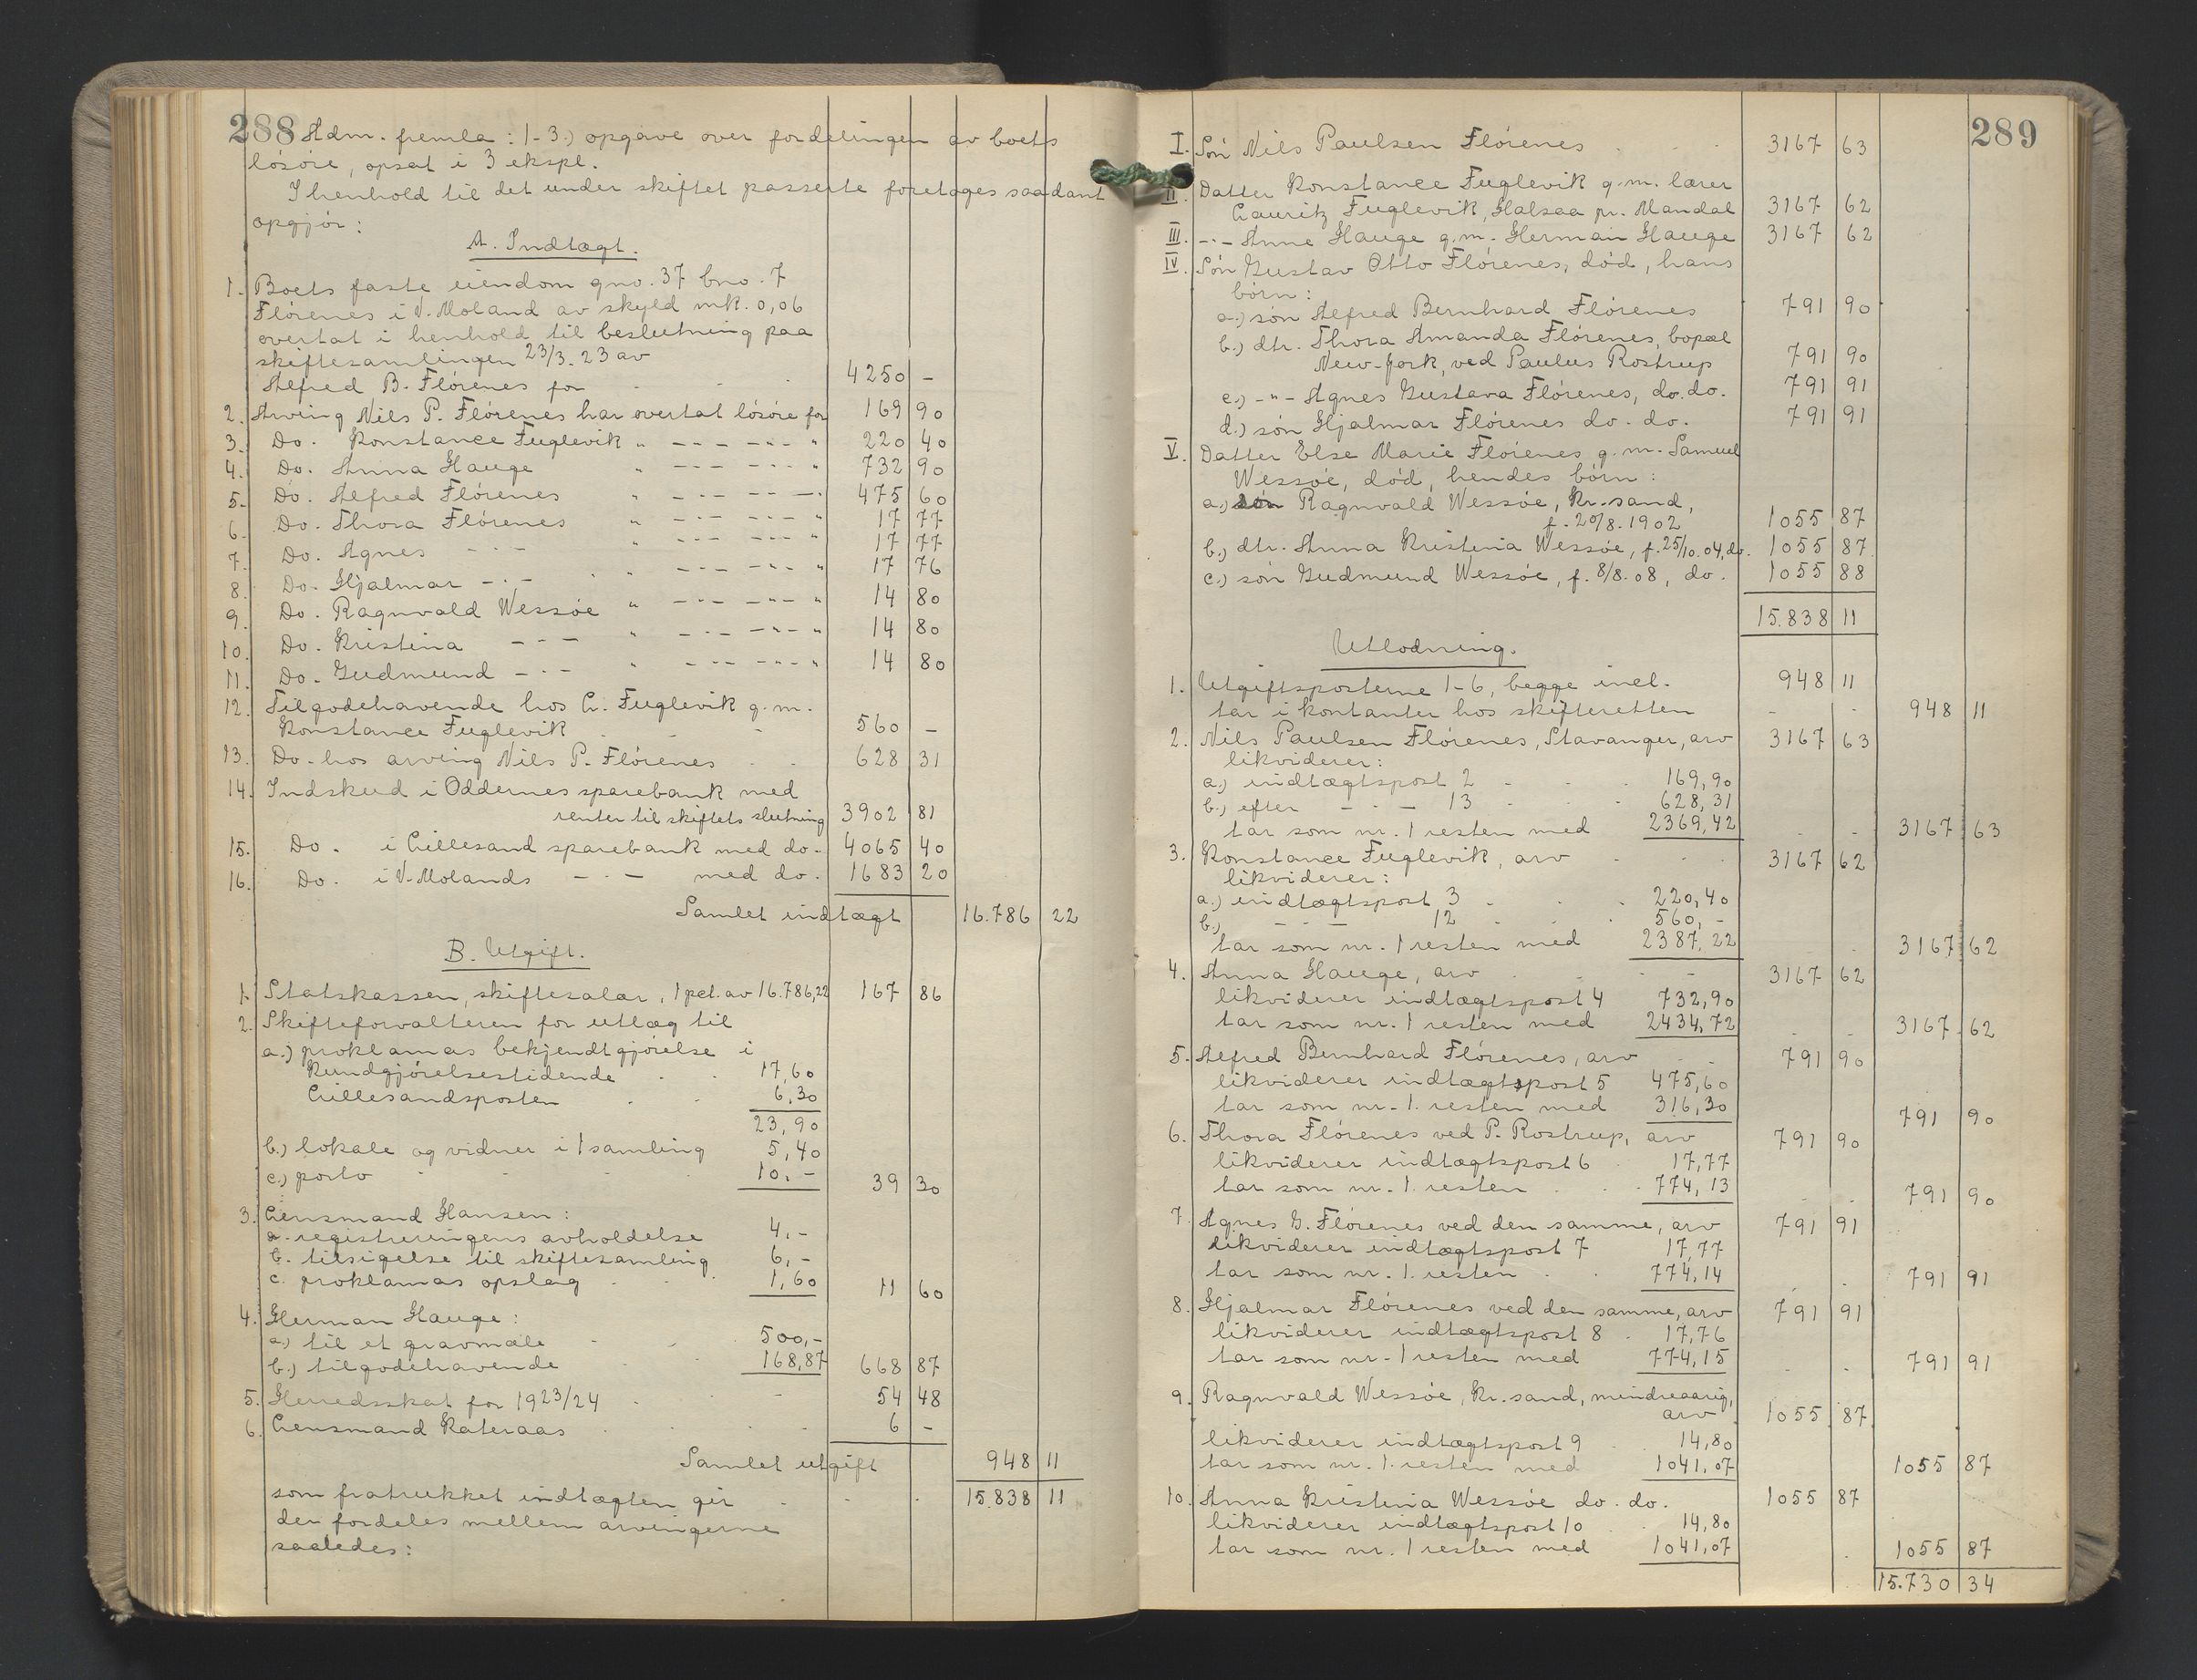 288 Adm. fremla: 1-3.) opgave over fordelingen av boets
løsøre, opsat i 3 ekspl.
I henhold til det under skiftet passerte foretages saadant
opgjør:
A. Indtægt.
1. Boets faste eiendom gno. 37 bno. 7
Flørenes i V. Moland av skyld mk. 0,06
overtat i henhold til beslutning paa
skiftesamlingen 23/3-23 av
Alfred B. Flørenes for - - 4250 -
2. Arving Nils P. Flørenes har overtat løsøre for 169 90
3. Do. Konstance Fuglevik " --- -"- " 220 40
4. Do. Anna Hauge " --- --- " 732 90
5. Do. Alfred Flørenes " --- --- 475 60
6. Do. Thora Flørenes " --- --- " 17 77
7. Do. Agnes -"- " --- --- " 17 77
8. Do. Hjalmar -"- " --- --- " 17 76
9. Do. Ragnvald Wessøe " --- -"- " 14 80
10. Do. Kristina -"- " --- -"- " 14 80
11. Do. Gudmund -"- " --- -"- " 14 80
12. Tilgodehavende hos L. Fuglevik g.m.
Konstance Fuglevik - - 560 -
13. Do. hos arving Nils P. Flørenes - - 628 31
14. Indskud i Oddernes sparebank med
renter til skiftets slutning 3902 81
15. Do. i Lillesand sparebank med do. 4065 40
16. Do. i V. Molands -"- med do. 1683 20
Samlet indtægt 16.786 22
B. Utgift.
1. Statskassen, skiftesalær, 1 pct. av 16.786,22 167 86
2. Skifteforvalteren for utlæg til
a.) proklamas bekjendtgjørelse i
Kundgjørelsestidende . . 17,60
Lillesandsposten . . 6,30
23,90
b.) lokale og vidner i 1 samling 5,40
c.) porto - - - 10,- 39 30
3. Lensmand Hansen:
a. registreringens avholdelse 4,-
b. tilsigelse til skiftesamling 6,-
c. proklamas opslag . . 1,60 11 60
4. Herman Hauge:
a.) til et gravmæle - - 500,-
b.) tilgodehavende . . 168,87 668 87
5. Herredsskat for 1923/24 . - - 54 48
6. Lensmand Kateraas . . - - 6 -
Samlet utgift 948 11
som fratrukket indtægten gir . . . 15.838 11
der fordeles mellem arvingerne
saaledes:
289
I. Søn Nils Paulsen Flørenes . . . 3167 63
II. Datter Konstance Fuglevik g.m. lærer
Lauritz Fuglevik, Halsaa pr. Mandal 3167 62
III. -"- Anne Hauge g.m. Herman Hauge 3167 62
IV. Søn Gustav Otto Flørenes, død, hans
børn:
a.) søn Alfred Bernhard Flørenes 791 90
b.) dtr. Thora Amanda Flørenes, bopæl
New-York, ved Paulus Rostrup 791 90
c.) -"- Agnes Gustava Flørenes, do. do. 791 91
d.) søn Hjalmar Flørenes do. do. 791 91
V. Datter Else Marie Flørenes g.m. Samuel
Wessøe, død, hendes børn:
a.) søn Ragnvald Wessøe, Kr.sand,
f. 20/8.1902 1055 87
b.) dtr. Anna Kristina Wessøe, f. 25/10.04, do. 1055 87
c.) søn Gudmund Wessøe, f. 8/8.08, do. 1055 88
15.838 11
Utlodning.
1. Utgiftsposterne 1-6, begge incl. 948 11
tar i kontanter hos skifteretten - - 948 11
2. Nils Paulsen Flørenes, Stavanger, arv 3167 63
likviderer:
a.) indtægtspost 2 - - . 169,90
b.) efter -"- 13 - . . 628,31
tar som nr. 1 resten med 2369,42 - - 3167 63
3. Konstance Fuglevik, arv . . . 3167 62
likviderer:
a.) indtægtspost 3 . . . 220,40
b.) -"- 12 . . . 560,-
tar som nr. 1 resten med 2387,22 . . 3167 62
4. Anna Hauge, arv . . - 3167 62
likviderer indtægtspost 4 732,90
tar som nr. 1 resten med 2434,72 - - 3167 62
5. Alfred Bernhard Flørenes, arv - - 791 90
likviderer indtægtspost 5 475,60
tar som nr. 1. resten med 316,30 791 90
6. Thora Flørenes ved P. Rostrup, arv 791 90
likviderer indtægtspost 6 17,77
tar som nr. 1. resten . . . 774,13 . . 791 90
7. Agnes G. Flørenes ved den samme, arv 791 91
likviderer indtægtspost 7 17,77
tar som nr. 1. resten . . 774,14 . . 791 91
8. Hjalmar Flørenes ved den samme, arv 791 91
likviderer indtægtspost 8 . 17,76
tar som nr. 1 resten med 774,15 . . 791 91
9. Ragnvald Wessøe, Kr.sand, mindreaarig,
arv 1055 87
likviderer indtægtspost 9 14,80
tar som nr. 1. resten med 1041,07 1055 87
10. Anna Kristina Wessøe do. do. 1055 87
likviderer indtægtspost 10 . 14,80
tar som nr. 1 resten med 1041,07 . 1055 87
15.730 34